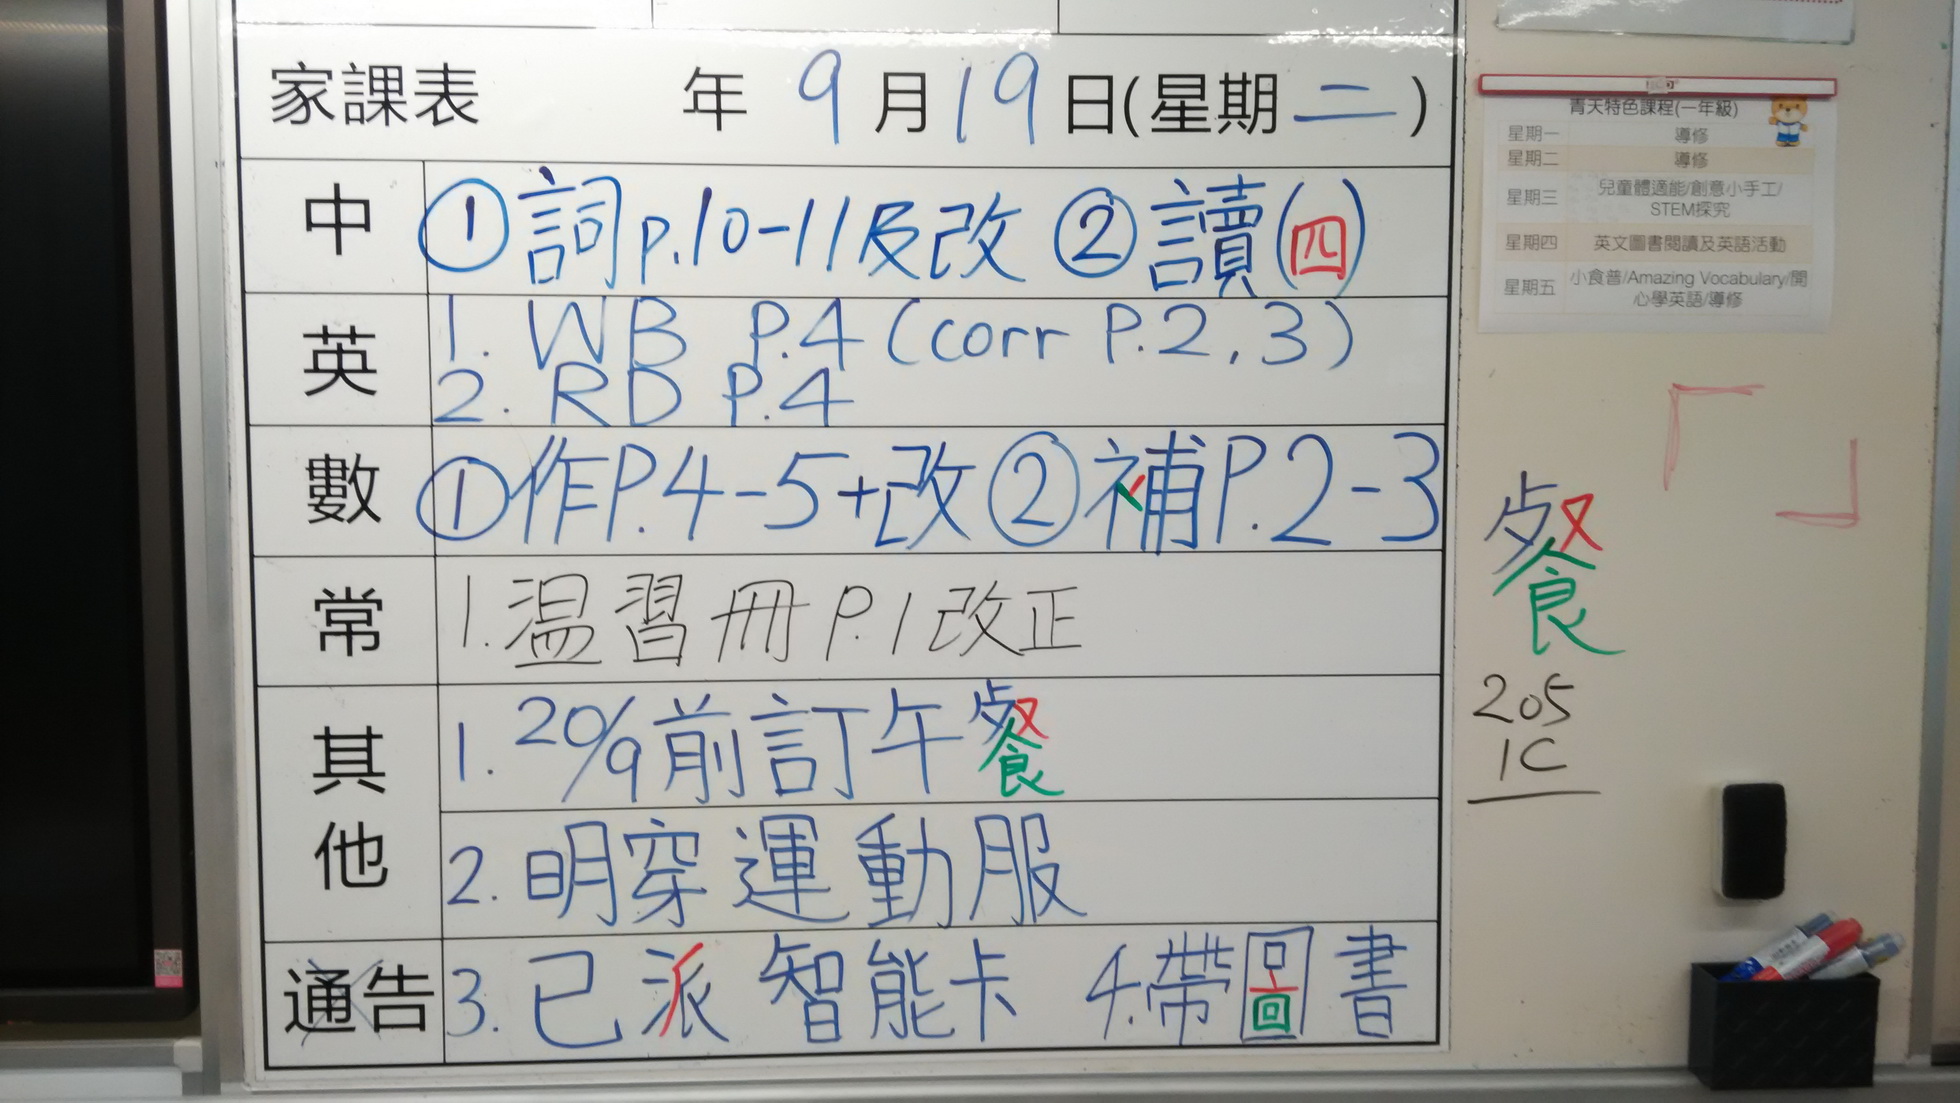 家課表 年 9 月 19 日(星期 二 )
中 ① 詞 p.10-11及改 ② 讀(四)
英 1. WB P.4 (corr P.2,3)
2. RD P.4
數 ① 作P.4-5+改 ② 補P.2-3
常 1. 溫習冊 P.1 改正
其他 1. 20/9前訂午餐
2. 明穿運動服
通告 3. 已派智能卡 4. 帶圖書
青天特色課程(一年級)
星期一 導修
星期二 導修
星期三 兒童體適能/創意小手工/
STEM探究
星期四 英文圖書閱讀及英語活動
星期五 小食普/Amazing Vocabulary/開
心學英語/導修
「 」
餐
205
1C